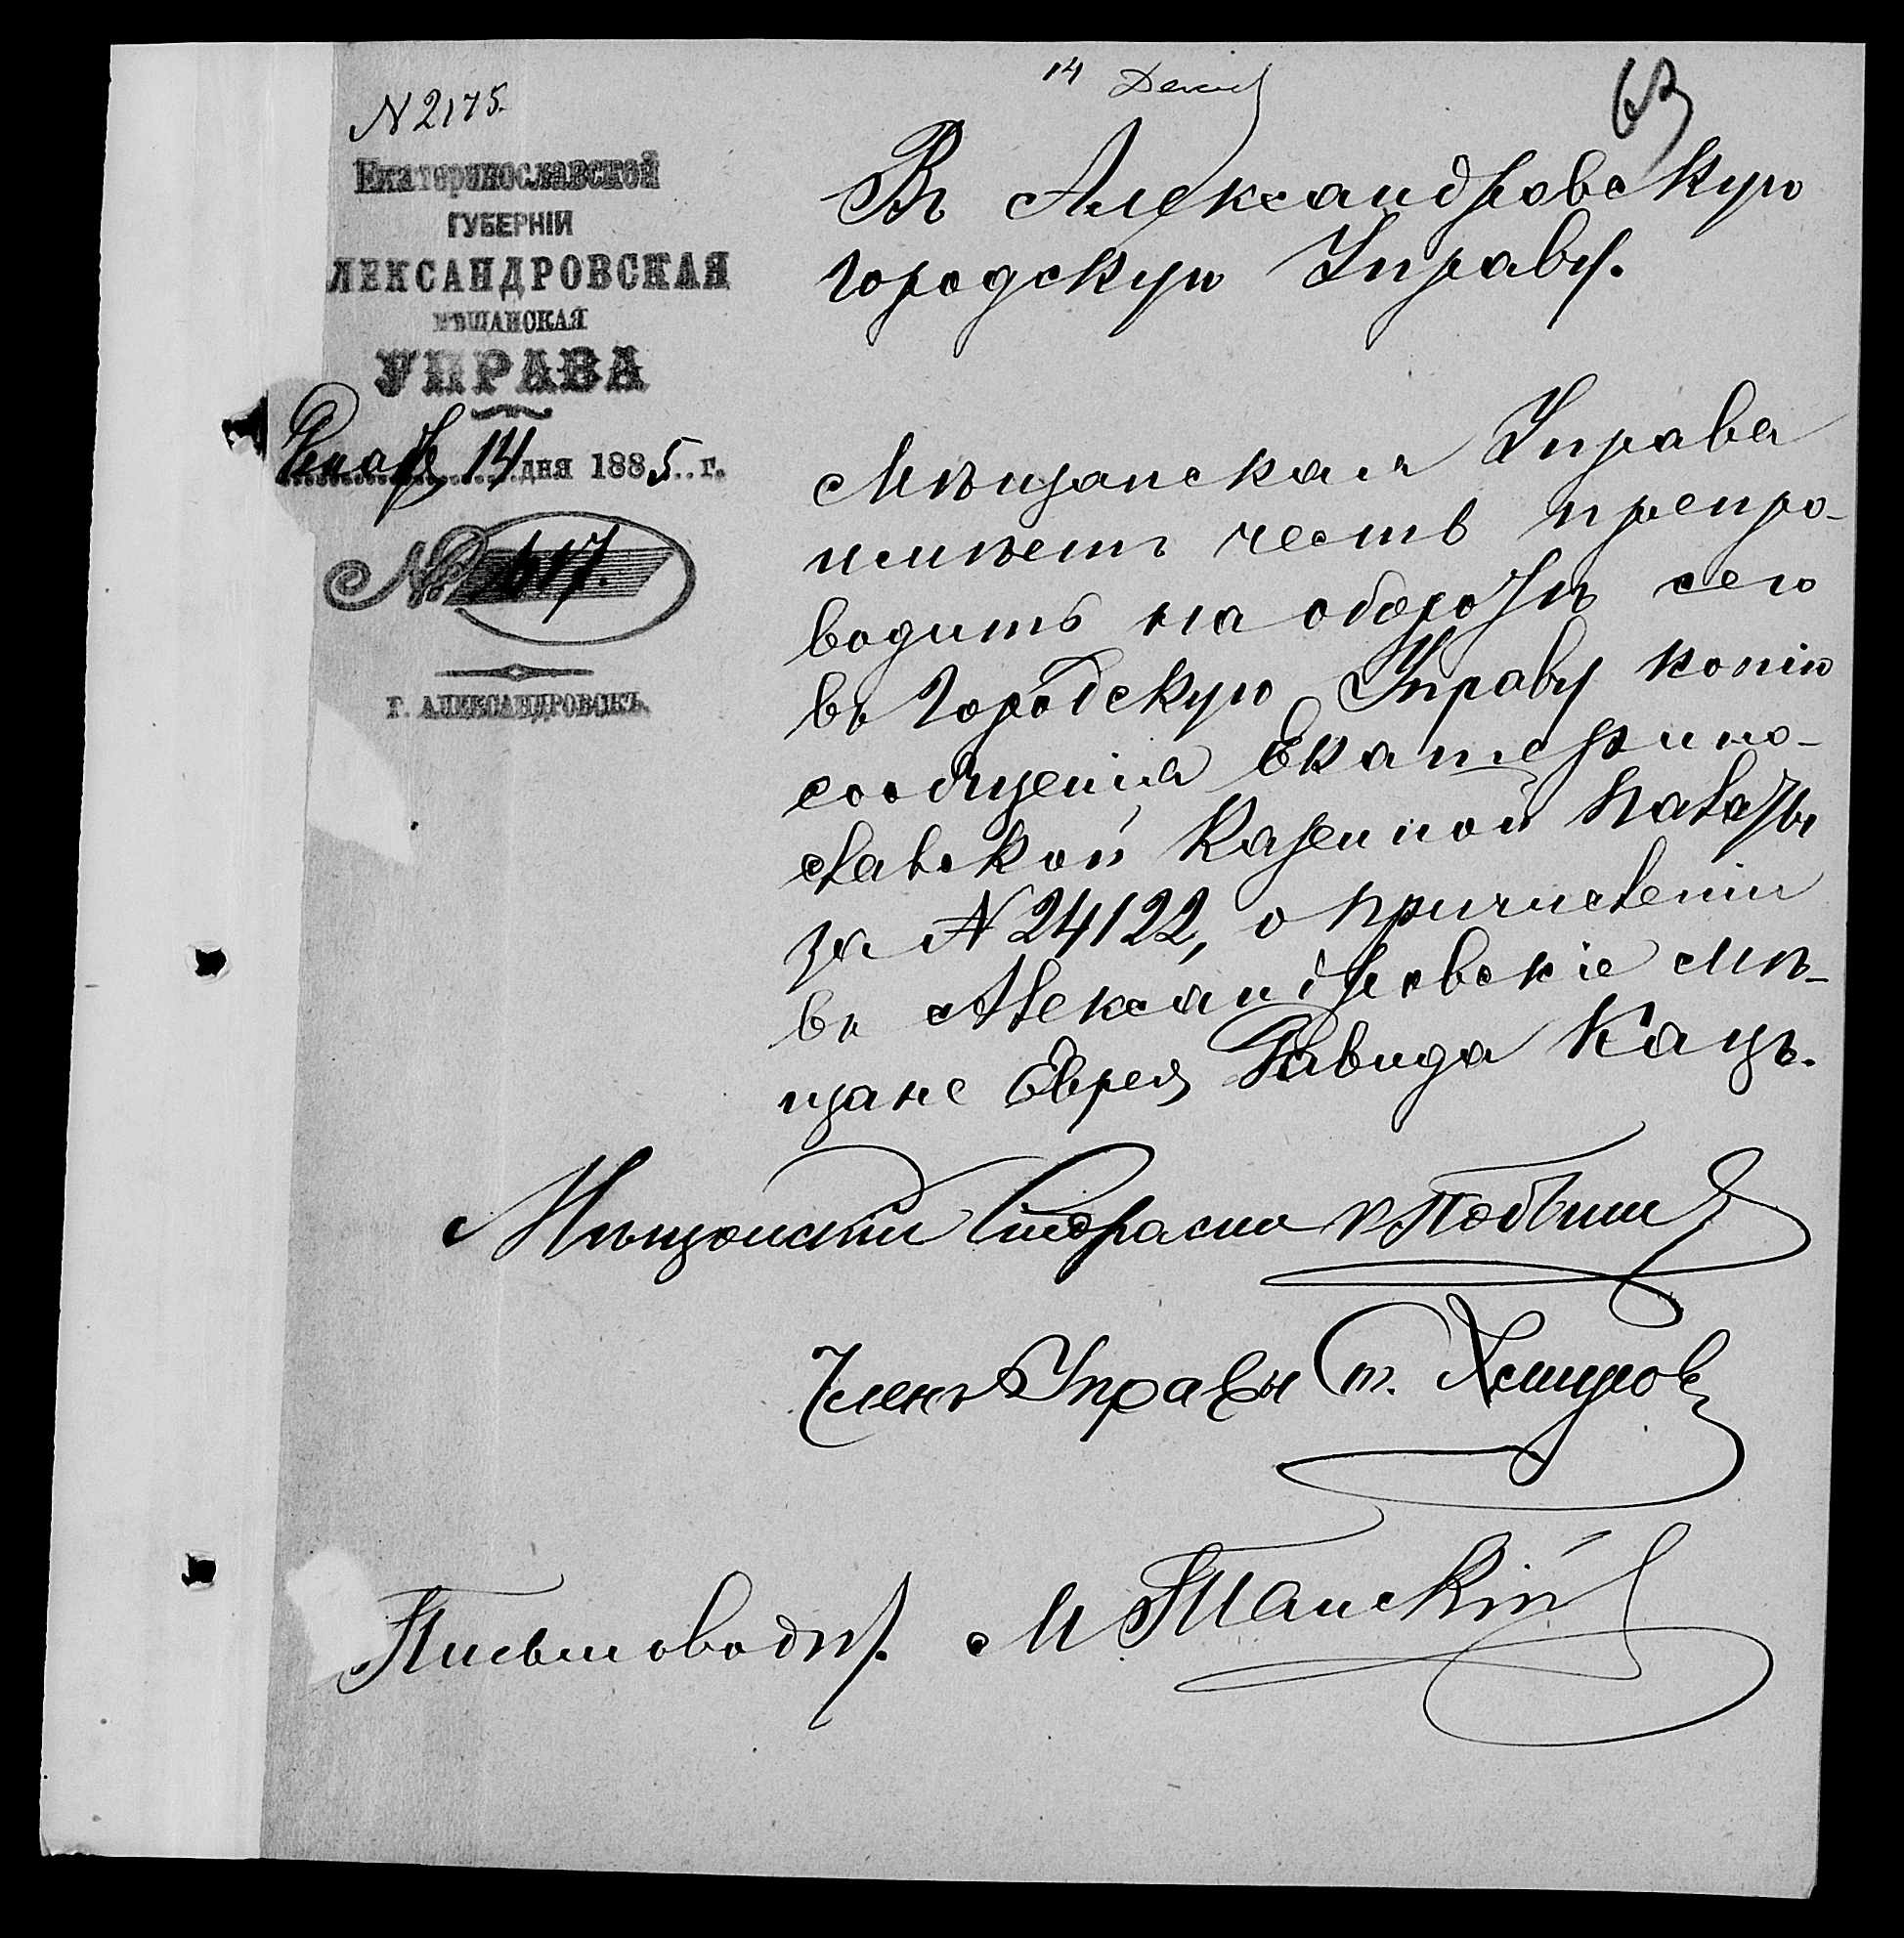 14 Декаб
63
N 2175.
Екатеринославской
ГУБЕРНІИ
ЛЕКСАНДРОВСКАЯ
МѢЩАНСКАЯ
УПРАВА
Декаб 14 дня 1885 г.
№ 617.
г. АЛЕКСАНДРОВСКЪ.
Въ Александровскую
Городскую Управу.
Мѣщанская Управа
имѣетъ честь препро-
водить на оборотѣ сего
въ Городскую Управу копію
сообщенія Екатерино-
славской Казенной Палаты
за N 24122, о причисленіи
въ Александровскіе мѣ-
щане Еврея Давида Кацъ.
Мѣщанскій Староста
Членъ Управы
Письмоводит.